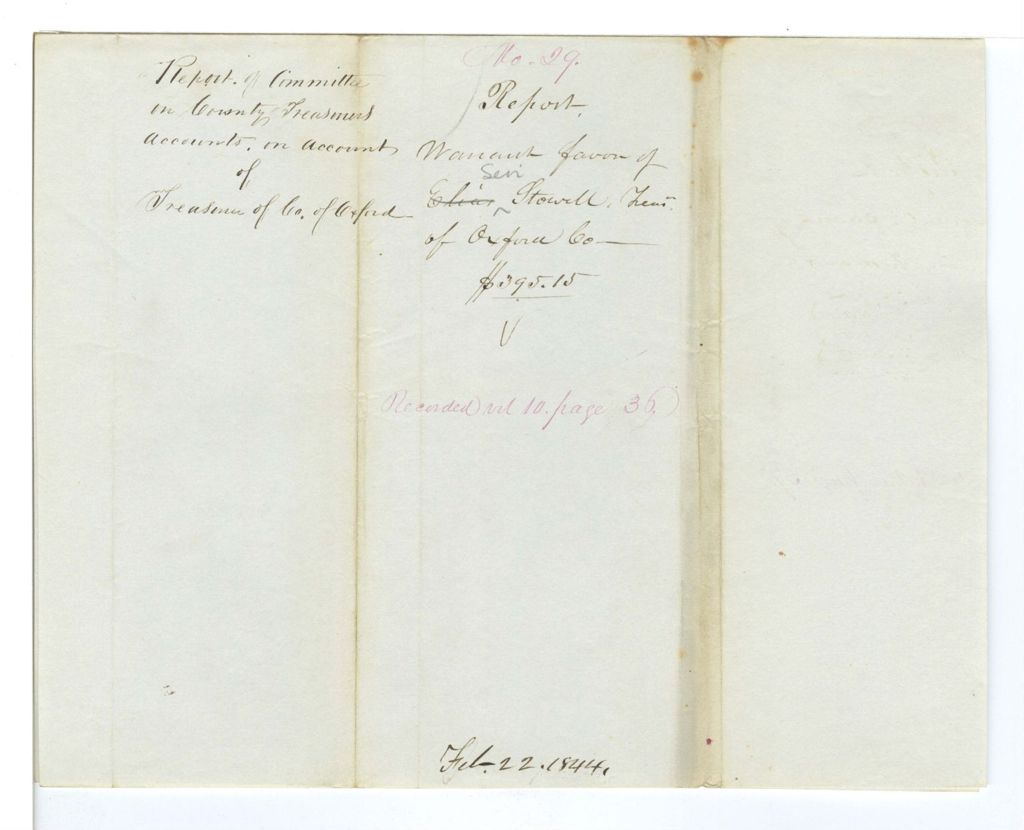 Report. of Committee
on County Treasurers
Accounts, on account
of
Treasurer of Co. of Oxford
No. 29.
Report.
Warrant favor of
Levi
Elias Stowell, Treas.
of Oxford Co
$395.15
Recorded vol 10. page 36
Feb. 22. 1844.